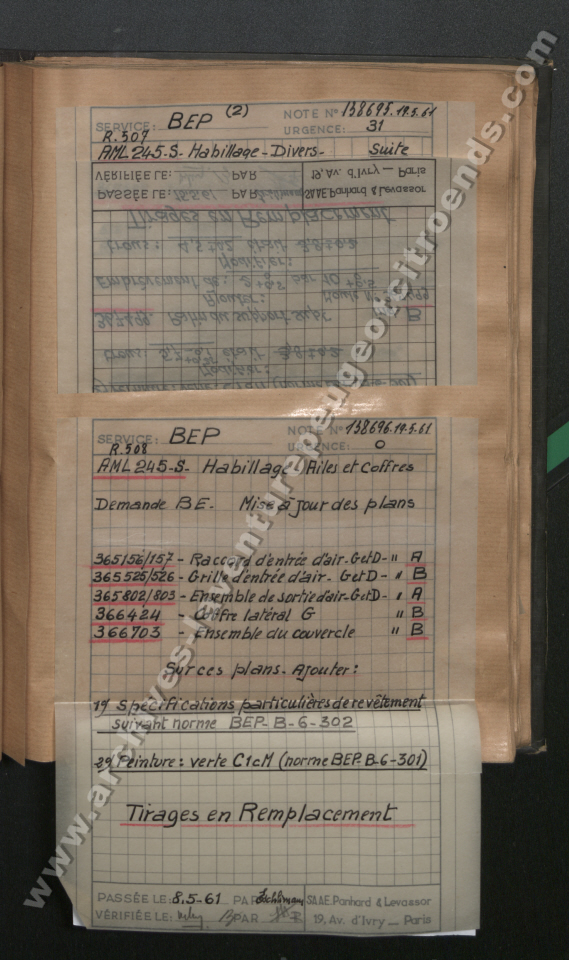 (2)
SERVICE: BEP NOTE N° 138695. 19.5.61
R.507 URGENCE: 31
AML 245.S. Habillage - Divers - Suite
VÉRIFIÉE LE: PAR 19, Av. d'Ivry — Paris
PASSÉE LE: PAR SAAE Panhard & Levassor
Tirages en Remplacement
Modifier:
Ajouter:
Modifier:
SERVICE: BEP NOTE N° 138696. 19.5.61
R.508 URGENCE: 0
AML 245.S. Habillage - Ailes et Coffres
Demande BE. Mise à jour des plans
365156/157 - Raccord d'entrée d'air - G et D - " A
365525/526 - Grille d'entrée d'air - G et D - " B
365802/803 - Ensemble de sortie d'air - G et D - " A
366424 - Coffre latéral G " B
366703 - Ensemble du couvercle " B
Sur ces plans - Ajouter:
1°) Spécifications particulières de revêtement
suivant norme BEP-B-6-302
2°) Peinture: verte C1cM (norme BEP.B-6-301)
Tirages en Remplacement
PASSÉE LE: 8.5-61 PAR SAAE Panhard & Levassor
VÉRIFIÉE LE: PAR 19, Av. d'Ivry — Paris
www.archives-laventurepeugeotcitroends.com